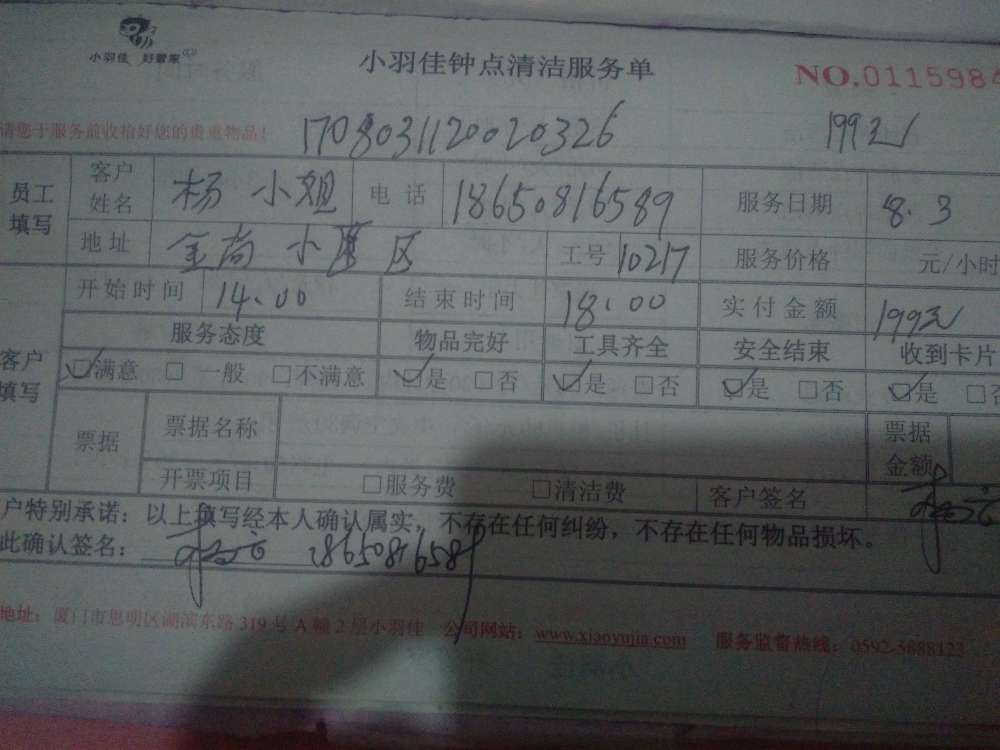 小羽佳 好管家
小羽佳钟点清洁服务单
NO.0115984
请您于服务前收拾好您的贵重物品！
170803112002​0326 199元
员工填写 客户姓名 杨小姐 电话 18650816589 服务日期 8.3
地址 金尚小区 工号 10217 服务价格 元/小时
客户填写 开始时间 14.00 结束时间 18.00 实付金额 199元
服务态度 物品完好 工具齐全 安全结束 收到卡片
☑满意 □一般 □不满意 ☑是 □否 ☑是 □否 ☑是 □否 ☑是 □否
票据 票据名称 票据金额
开票项目 □服务费 □清洁费 客户签名
户特别承诺：以上填写经本人确认属实，不存在任何纠纷，不存在任何物品损坏。
此确认签名： 18650816589
地址：厦门市思明区湖滨东路319号A幢2层小羽佳 公司网站：www.xiaoyujia.com 服务监督热线：0592-5888123